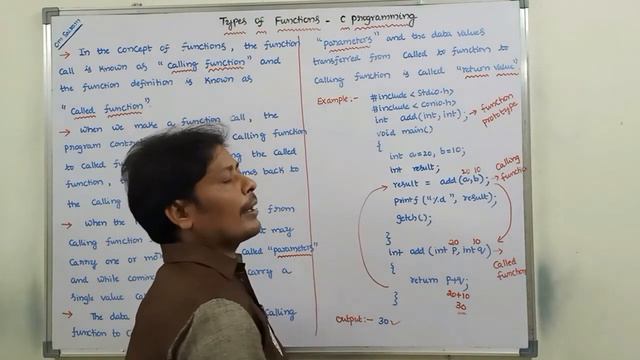 Om Sairam
Types of Functions - C Programming
→ In the concept of functions, the function
call is known as "calling function" and
the function definition is known as
"Called function".
→ When we make a function call, the
program cont calling function
to called f ng the called
function, mes back to
the calling
→ when the from
Calling function may
Carry one or mo called "parameters"
and while com carry a
single value cal
→ The data calling
function to c
"parameters" and the data values
transferred from called to function to
calling function is called "return value"
Example:-
#include<stdio.h>
#include<conio.h>
int add(int, int); → function
prototype
void main()
{
int a=20, b=10;
int result;
20 10
result = add(a,b); → Calling
function
printf("%d", result);
getch();
}
20 10
int add (int p, int q) →
Called
function
{
return p+q;
20+10
}
30
Output:- 30